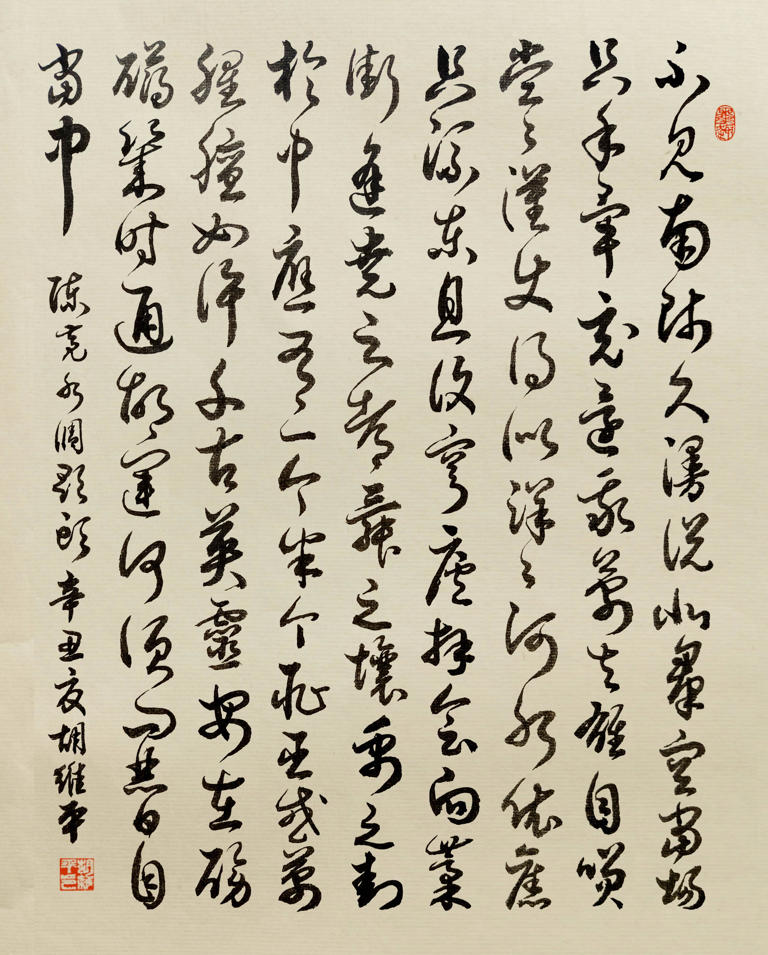 不見南師久漫説北羣空當場
只手畢竟還我萬夫雄自笑
堂々漢使得似洋々河水依舊
只流東且復穹廬拜會向藁
街逢堯之都舜之壤禹之封
於中應有一个半个恥臣戎萬
腥膻如許千古英靈安在磅
礴幾時通胡運何須問赫日自
當中
陳亮水調歌頭 辛丑夏胡維平